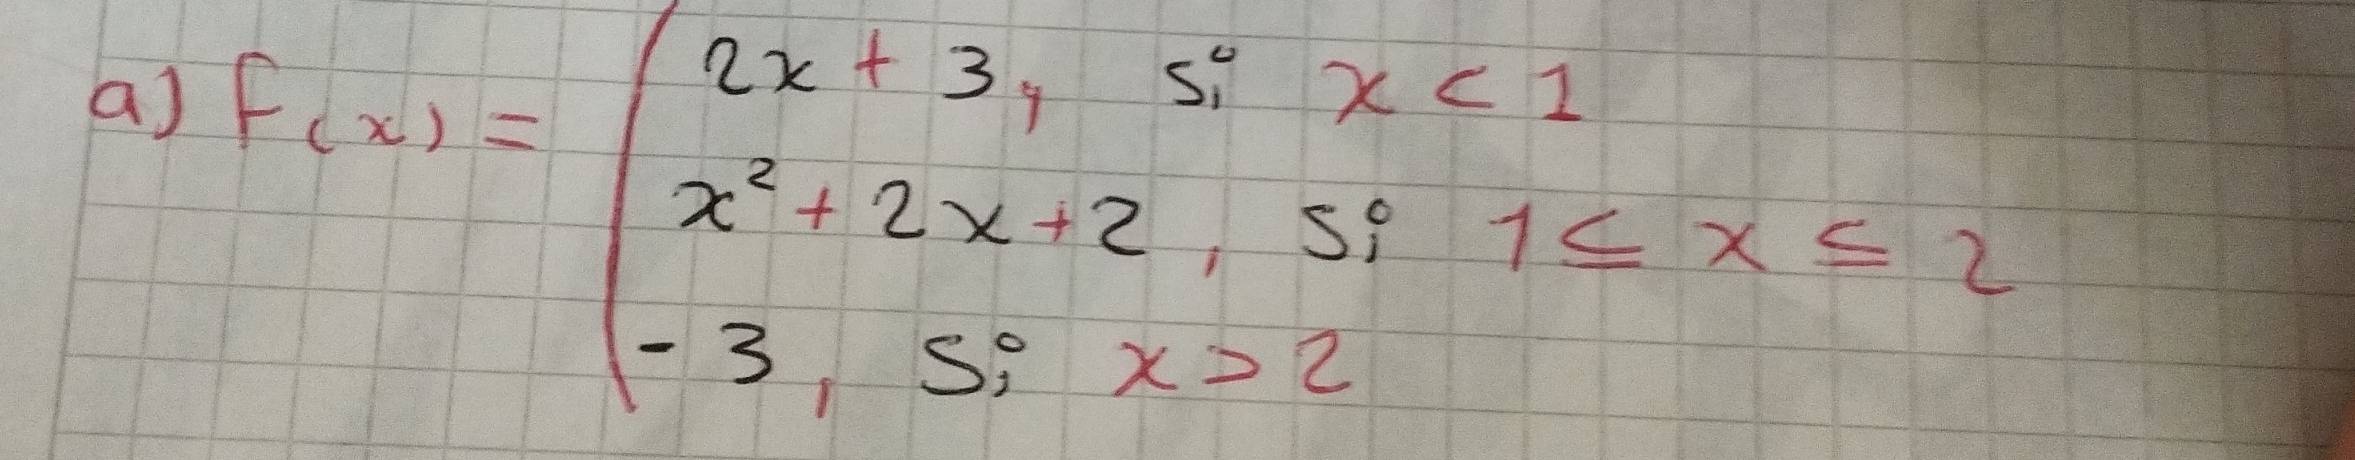 a) f(x) = { 2x + 3, si x < 1
x² + 2x + 2, si 1 ≤ x ≤ 2
- 3, si x > 2